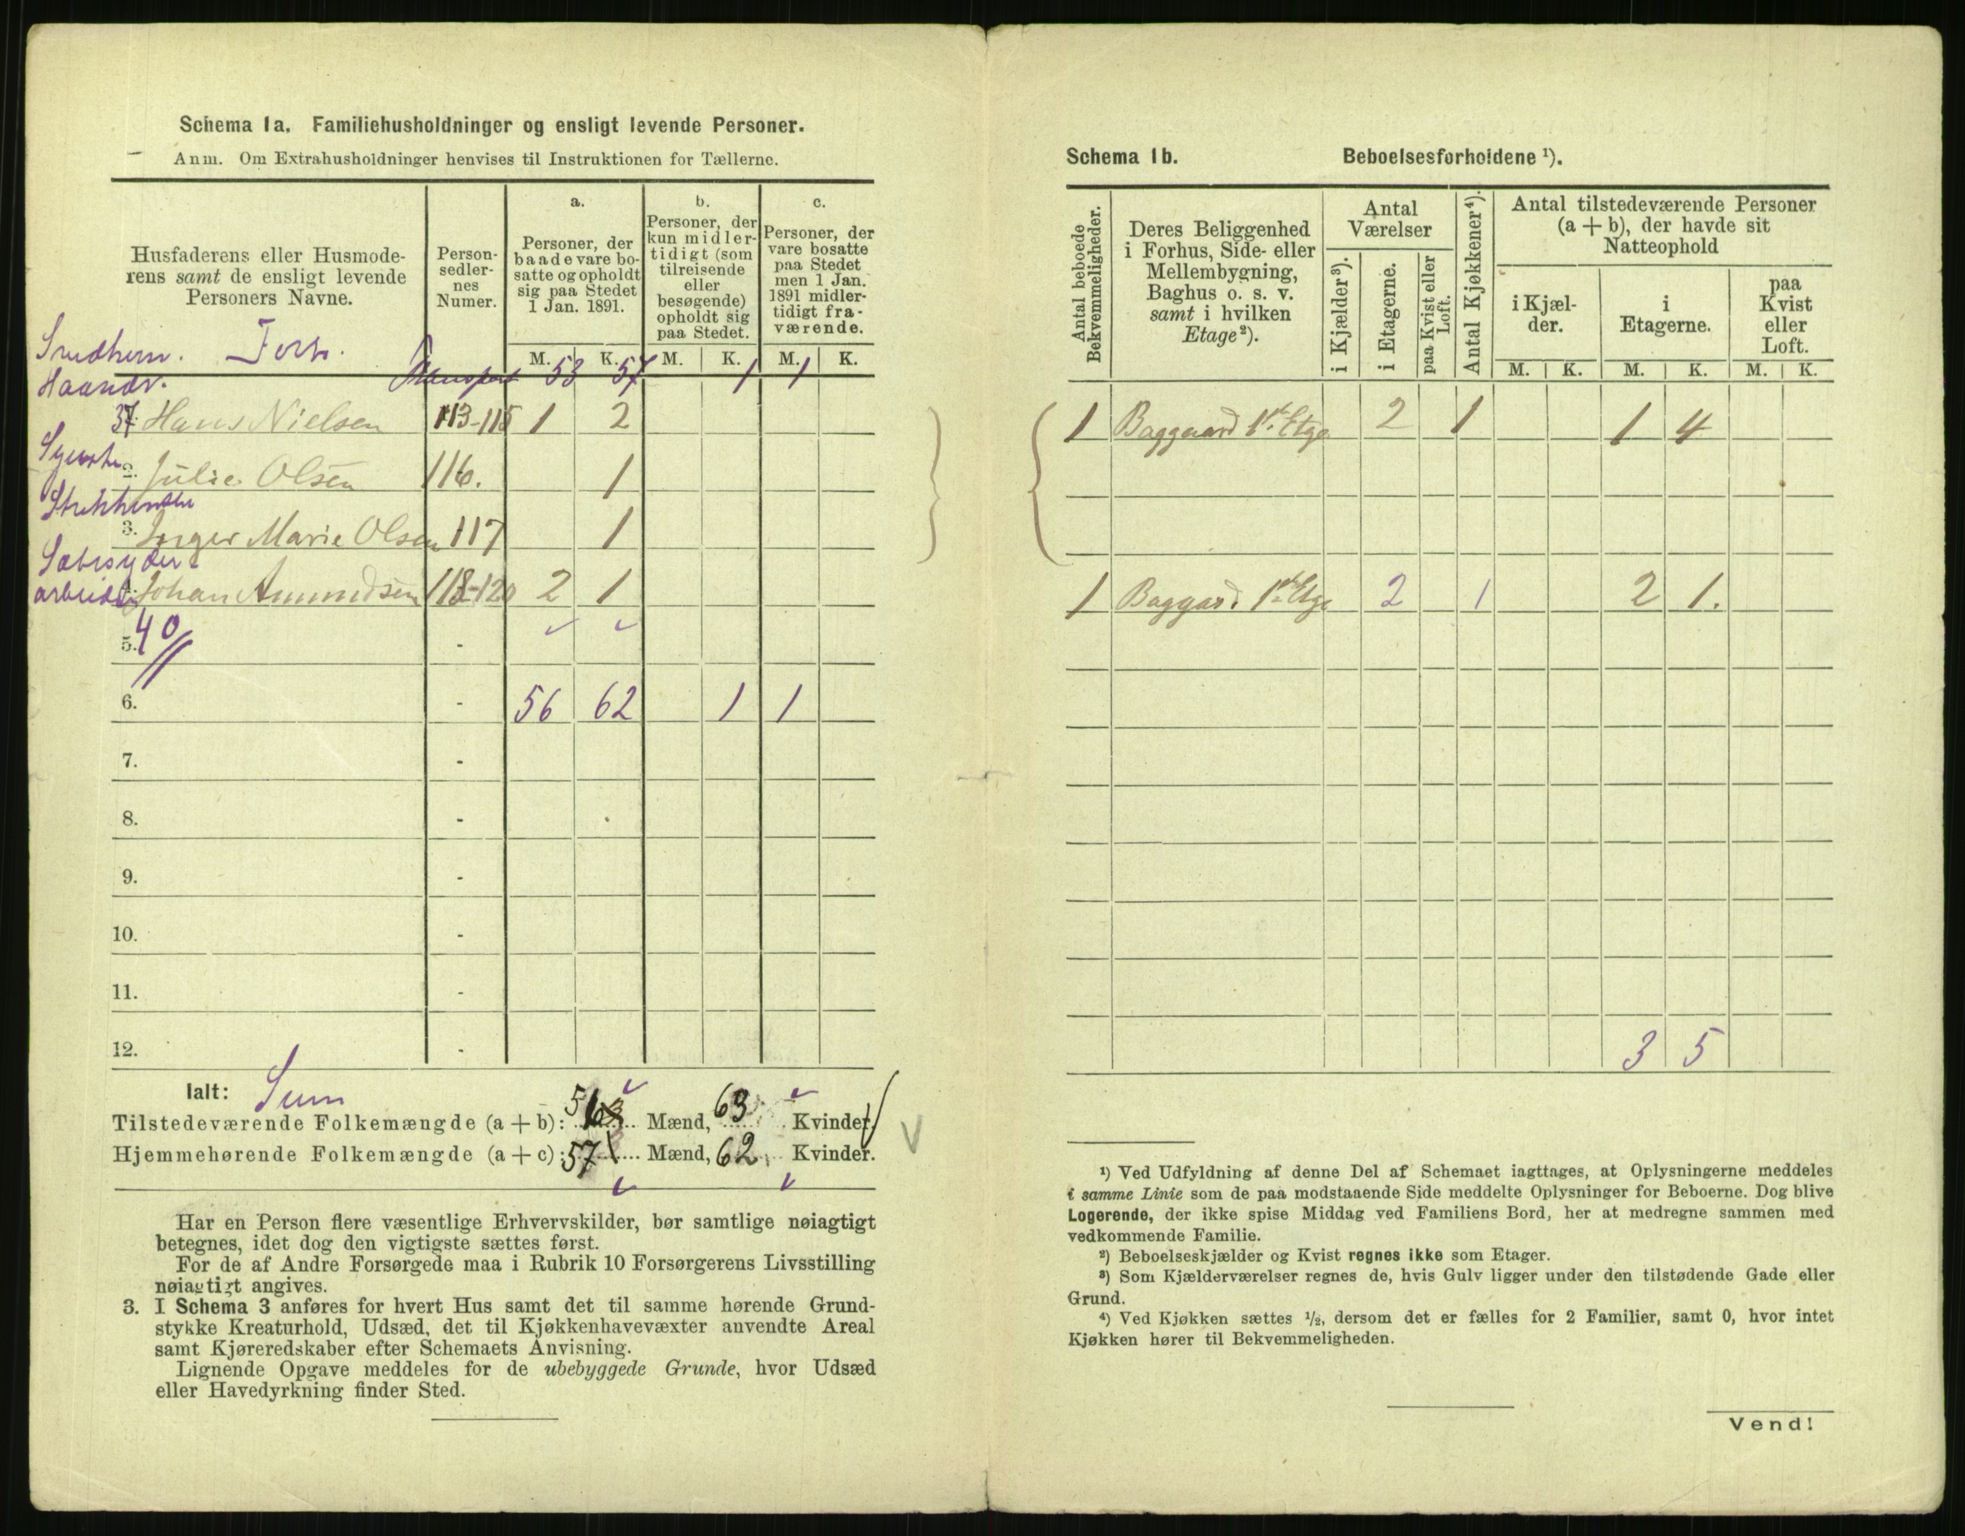 Schema 1a. Familiehusholdninger og ensligt levende Personer.
Anm. Om Extrahusholdninger henvises til Instruktionen for Tællerne.
Husfaderens eller Husmoderens samt de ensligt levende Personers Navne.
Person-sedlernes Numer.
a.
Personer, der baade vare bosatte og opholdt sig paa Stedet 1 Jan. 1891.
b.
Personer, der kun midlertidigt (som tilreisende eller besøgende) opholdt sig paa Stedet.
c.
Personer, der vare bosatte paa Stedet men 1 Jan. 1891 midlertidigt fraværende.
M. K. M. K. M. K.
Forts.
Transport 53 57 1 1
Haandv.
37. Hans Nielsen 113-115 1 2
2. Julie Olsen 116. 1
3. Inger Marie Olsen 117 1
arbeider
Johan Amundsen 118-120 2 1
5. 40 -
6. - 56 62 1 1
7. -
8. -
9. -
10. -
11. -
12. -
Ialt: Sum
Tilstedeværende Folkemængde (a + b): 56 Mænd, 63 Kvinder.
Hjemmehørende Folkemængde (a + c): 57 Mænd, 62 Kvinder.
Har en Person flere væsentlige Erhvervskilder, bør samtlige nøiagtigt
betegnes, idet dog den vigtigste sættes først.
For de af Andre Forsørgede maa i Rubrik 10 Forsørgerens Livsstilling
nøiagtigt angives.
3. I Schema 3 anføres for hvert Hus samt det til samme hørende Grund-
stykke Kreaturhold, Udsæd, det til Kjøkkenhavevæxter anvendte Areal
samt Kjøreredskaber efter Schemaets Anvisning.
Lignende Opgave meddeles for de ubebyggede Grunde, hvor Udsæd
eller Havedyrkning finder Sted.
Schema 1b. Beboelsesforholdene ¹).
Antal beboede Bekvemmeligheder.
Deres Beliggenhed i Forhus, Side- eller Mellembygning, Baghus o. s. v. samt i hvilken Etage²).
Antal Værelser
i Kjælder³).
i Etagerne.
paa Kvist eller Loft.
Antal Kjøkkener⁴).
Antal tilstedeværende Personer (a + b), der havde sit Natteophold
i Kjælder.
i Etagerne.
paa Kvist eller Loft.
M. K. M. K. M. K.
1 Baggaard 1ste Etge 2 1 1 4
1 Baggard. 1ste Etge 2 1 2 1.
3 5
¹) Ved Udfyldning af denne Del af Schemaet iagttages, at Oplysningerne meddeles
i samme Linie som de paa modstaaende Side meddelte Oplysninger for Beboerne. Dog blive
Logerende, der ikke spise Middag ved Familiens Bord, her at medregne sammen med
vedkommende Familie.
²) Beboelseskjælder og Kvist regnes ikke som Etager.
³) Som Kjælderværelser regnes de, hvis Gulv ligger under den tilstødende Gade eller
Grund.
⁴) Ved Kjøkken sættes ½, dersom det er fælles for 2 Familier, samt 0, hvor intet
Kjøkken hører til Bekvemmeligheden.
Vend!